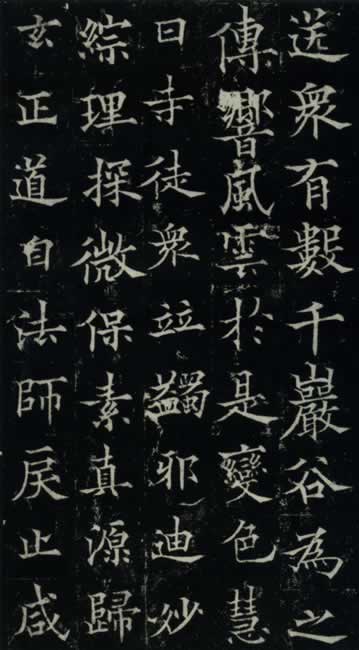 送眾有數千巖谷為之
傳響風雲於是變色慧
日寺徒眾竝蠲邪迪妙
綜理探微保素真源歸
玄正道自法師戾止咸